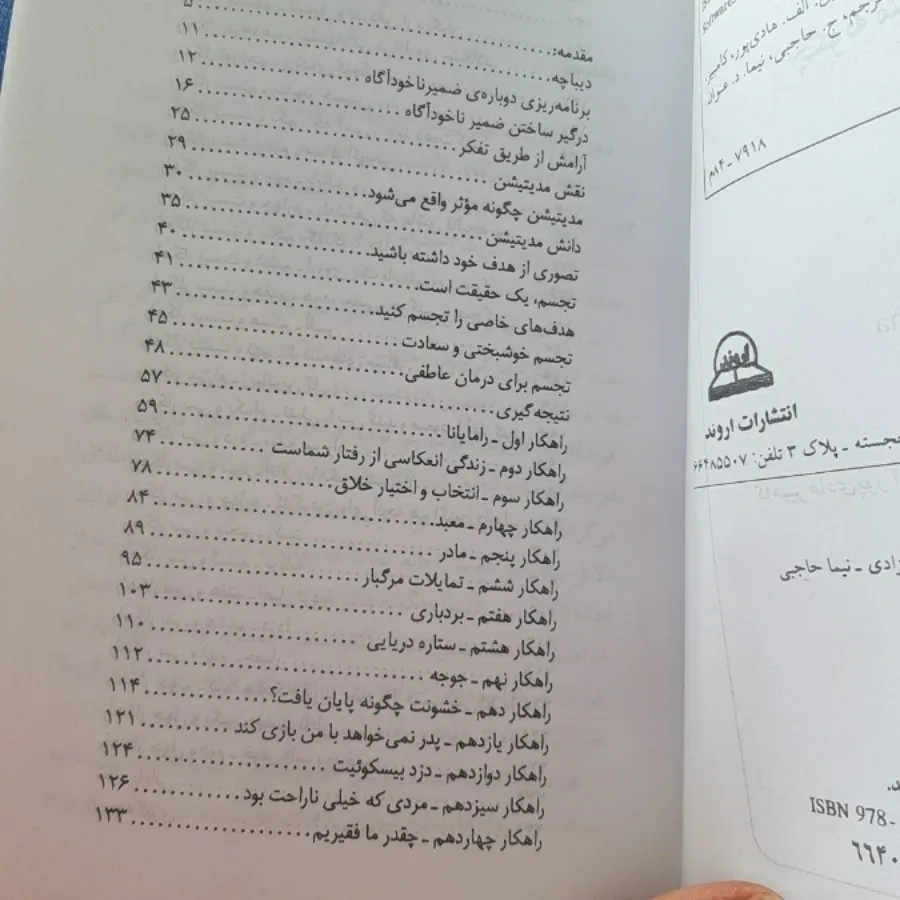 software
الف. هادی‌پور، کامبیز.
ج. حاجبی، نیما. د. عنوان.
۸۴م ـ ۷۹۱۸
اروند
انتشارات اروند
خجسته ـ پلاک ۳ تلفن: ۶۶۴۸۵۵۰۷
ـ نیما حاجبی
ISBN 978-
مقدمه: ۵
دیباچه ۱۱
برنامه‌ریزی دوباره‌ی ضمیرناخودآگاه ۱۲
درگیر ساختن ضمیر ناخودآگاه ۱۶
آرامش از طریق تفکر ۲۵
نقش مدیتیشن ۲۹
مدیتیشن چگونه مؤثر واقع می‌شود ۳۰
دانش مدیتیشن ۳۵
تصوری از هدف خود داشته باشید ۴۰
تجسم، یک حقیقت است ۴۱
هدف‌های خاصی را تجسم کنید ۴۳
تجسم خوشبختی و سعادت ۴۵
تجسم برای درمان عاطفی ۴۸
نتیجه‌گیری ۵۷
راهکار اول ـ رامایانا ۵۹
راهکار دوم ـ زندگی انعکاسی از رفتار شماست ۷۴
راهکار سوم ـ انتخاب و اختیار خلاق ۷۸
راهکار چهارم ـ معبد ۸۴
راهکار پنجم ـ مادر ۸۹
راهکار ششم ـ تمایلات مرگبار ۹۵
راهکار هفتم ـ بردباری ۱۰۳
راهکار هشتم ـ ستاره دریایی ۱۱۰
راهکار نهم ـ جوجه ۱۱۲
راهکار دهم ـ خشونت چگونه پایان یافت؟ ۱۱۴
راهکار یازدهم ـ پدر نمی‌خواهد با من بازی کند ۱۲۱
راهکار دوازدهم ـ دزد بیسکوئیت ۱۲۴
راهکار سیزدهم ـ مردی که خیلی ناراحت بود ۱۲۶
راهکار چهاردهم ـ چقدر ما فقیریم ۱۳۳